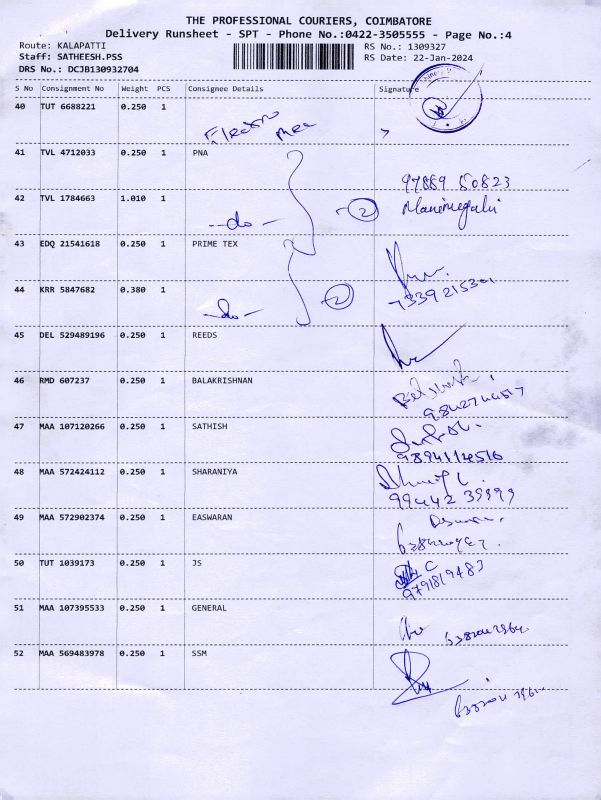 THE PROFESSIONAL COURIERS, COIMBATORE
Delivery Runsheet - SPT - Phone No.:0422-3505555 - Page No.:4
Route: KALAPATTI
RS No.: 1309327
Staff: SATHEESH.PSS
RS Date: 22-Jan-2024
DRS No.: DCJB130932704
S No Consignment No Weight PCS Consignee Details Signature
40 TUT 6688221 0.250 1
41 TVL 4712033 0.250 1 PNA
97889 50823
42 TVL 1784663 1.010 1
-do- 2
43 EDQ 21541618 0.250 1 PRIME TEX
44 KRR 5847682 0.380 1
7339215301
-do- 2
45 DEL 529489196 0.250 1 REEDS
46 RMD 607237 0.250 1 BALAKRISHNAN
47 MAA 107120266 0.250 1 SATHISH
9894114516
48 MAA 572424112 0.250 1 SHARANIYA
99442 39999
49 MAA 572902374 0.250 1 EASWARAN
50 TUT 1039173 0.250 1 JS
9791819483
51 MAA 107395533 0.250 1 GENERAL
52 MAA 569483978 0.250 1 SSM